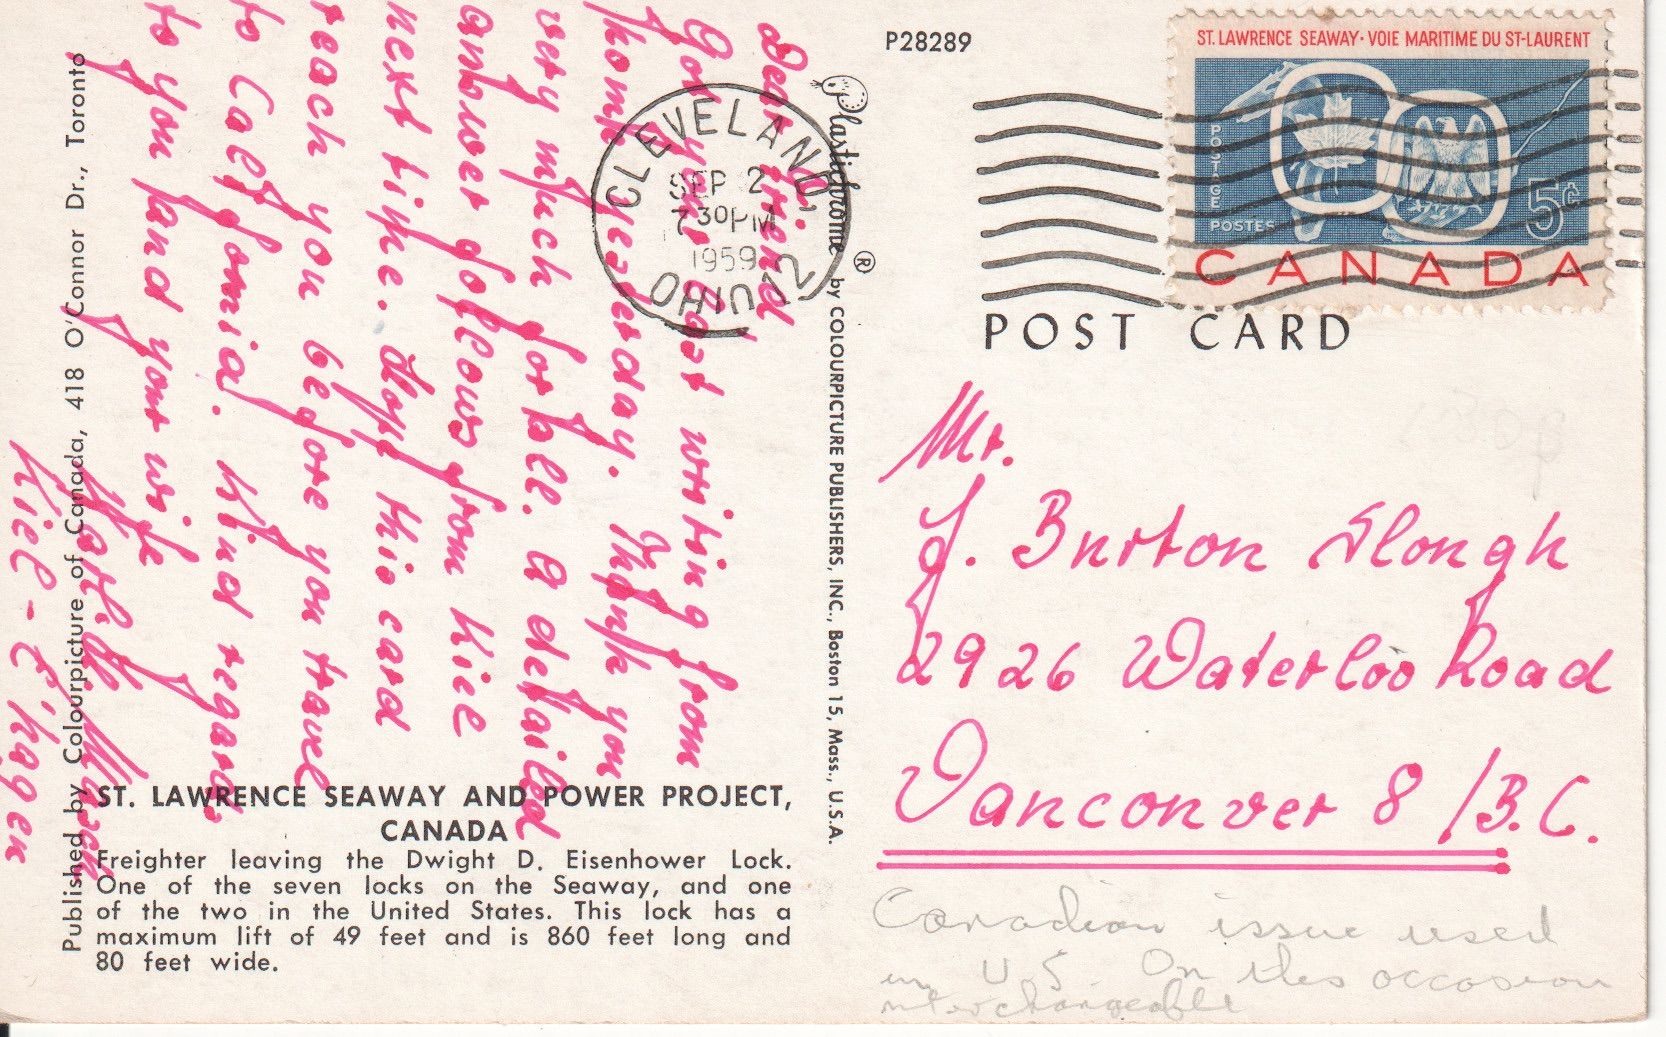 P28289
ST. LAWRENCE SEAWAY · VOIE MARITIME DU ST-LAURENT
POSTAGE
POSTES
5¢
CANADA
CLEVELAND,
SEP 2
7 30 PM
1959
OHIO
12
POST CARD
Dear friend
Got your last writing from
home yesterday. Thank you
very much for all. A detailed
answer follows from Kiel
next time. Hope this card
reach you before you travel
to California. Kind regards
to you and your wife
Kiel-E'hagen
Mr.
J. Burton Slough
2926 Waterloo Road
Vancouver 8 / B.C.
Canadian issue used
in U.S. On this occasion
interchangeable
Plastichrome ® by COLOURPICTURE PUBLISHERS, INC., Boston 15, Mass., U.S.A.
Published by Colourpicture of Canada, 418 O'Connor Dr., Toronto
ST. LAWRENCE SEAWAY AND POWER PROJECT,
CANADA
Freighter leaving the Dwight D. Eisenhower Lock.
One of the seven locks on the Seaway, and one
of the two in the United States. This lock has a
maximum lift of 49 feet and is 860 feet long and
80 feet wide.